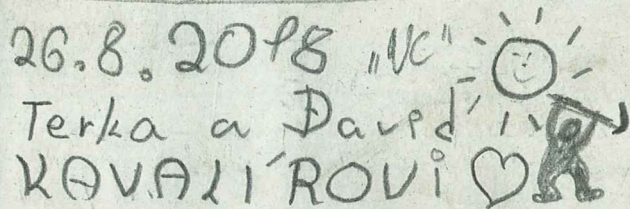 26.8.2018 „VC“
Terka a David
KAVALÍROVI